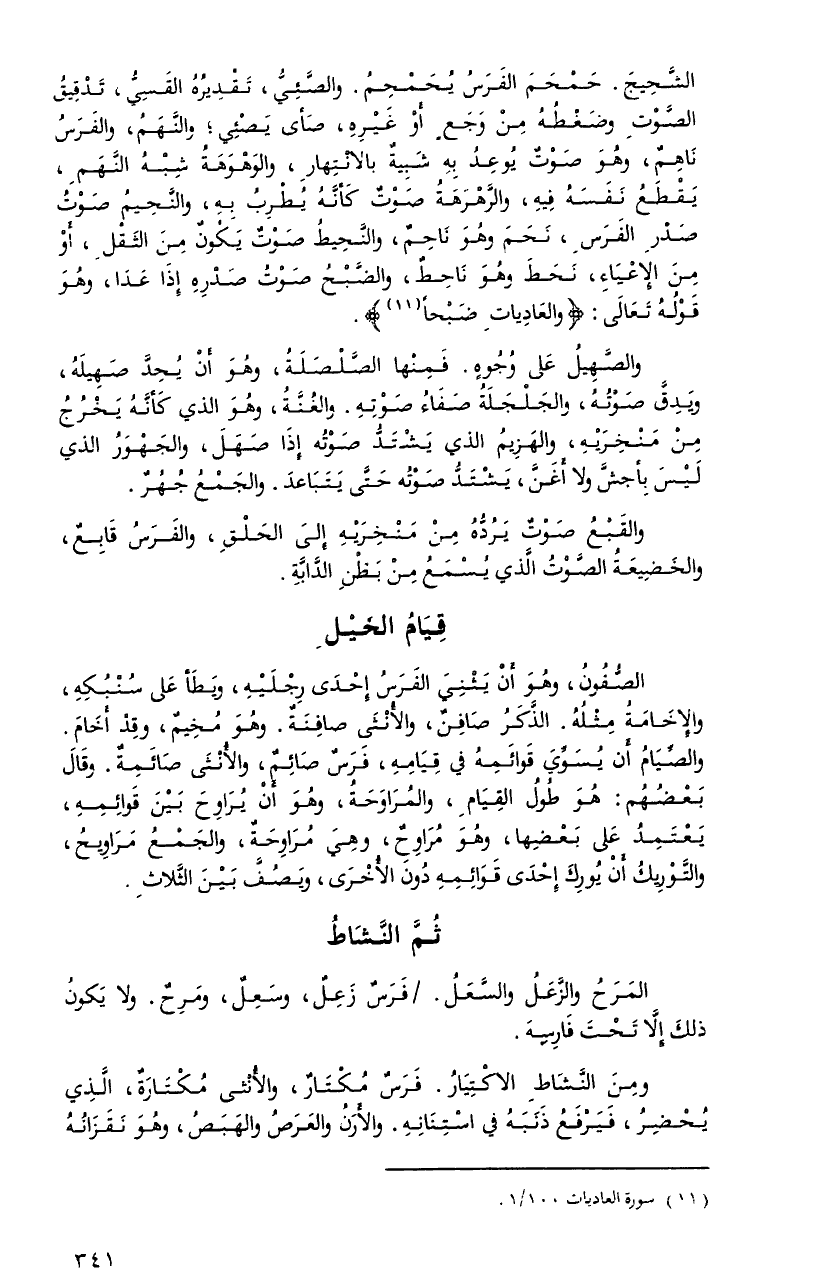 الشَّحِيجَ. حَمْحَمَ الفَرَسُ يُحَمْحِمُ. والصَّئِيُّ، تَقْدِيرُهُ القَسِيُّ، تَدْقِيقُ
الصَّوْتِ وضَغْطُهُ مِنْ وَجَعٍ أَوْ غَيْرِهِ، صَأى يَصْئِي؛ والنَّهَمُ، والفَرَسُ
نَاهِمٌ، وهُوَ صَوْتٌ يُوعِدُ بِهِ شَبِيهٌ بالانْتِهارِ، والوَهْوَهَةُ شِبْهُ النَّهَمِ،
يَقْطَعُ نَفَسَهُ فِيهِ، والزَّهْزَهَةُ صَوْتٌ كَأنَّهُ يُطْرِبُ بِهِ، والنَّحِيمُ صَوْتُ
صَدْرِ الفَرَسِ، نَحَمَ وهُوَ نَاحِمٌ، والنَّحِيطُ صَوْتٌ يَكُونُ مِنَ الثِّقْلِ، أَوْ
مِنَ الإعْيَاءِ، نَحَطَ وهُوَ نَاحِطٌ، والضَّبْحُ صَوْتُ صَدْرِهِ إذَا عَدَا، وهُوَ
قَوْلُهُ تَعَالَى: ﴿والعَادِيَاتِ ضَبْحاً(١١)﴾.
والصَّهِيلُ عَلى وُجُوهٍ. فَمِنْها الصَّلْصَلَةُ، وهُوَ أَنْ يُحِدَّ صَهِيلَهُ،
ويَدِقَّ صَوْتُهُ، والجَلْجَلَةُ صَفَاءُ صَوْتِهِ. والغُنَّةُ، وهُوَ الذي كَأنَّهُ يَخْرُجُ
مِنْ مَنْخِرَيْهِ، والهَزِيمُ الذي يَشْتَدُّ صَوْتُه إذَا صَهَلَ، والجَهْوَرُ الذي
لَيْسَ بِأجشَّ ولا أَغَنَّ، يَشْتَدُّ صَوْتُه حَتَّى يَتَبَاعدَ. والجَمْعُ جُهُرٌ.
والقَبْعُ صَوْتٌ يَرُدُّهُ مِنْ مَنْخِرَيْهِ إلىَ الحَلْقِ، والفَرَسُ قَابِعٌ،
والخَضِيعَةُ الصَّوْتُ الَّذي يُسْمَعُ مِنْ بَطْنِ الدَّابَّةِ.
قِيَامُ الخَيْلِ
الصُّفُونُ، وهُوَ أَنْ يَثْنِيَ الفَرَسُ إحْدَى رِجْلَيْهِ، ويَطَأ عَلى سُنْبُكِهِ،
والإخَامَةُ مِثْلُهُ. الذَّكَرُ صَافِنٌ، والأُنْثَى صافِنَةٌ. وهُوَ مُخِيمٌ، وقَدْ أخَامَ.
والصِّيَامُ أن يُسَوِّيَ قَوائِمَهُ في قِيَامِهِ، فَرَسٌ صَائِمٌ، والأُنْثَى صَائِمَةٌ. وقَالَ
بَعْضُهُم: هُوَ طُولُ القِيَامِ، والمُرَاوَحَةُ، وهُوَ أَنْ يُرَاوِحَ بَيْنَ قَوائِمِهِ،
يَعْتَمِدُ عَلى بَعْضِها، وهُوَ مُرَاوِحٌ، وهِيَ مُرَاوِحَةٌ، والجَمْعُ مَرَاوِيحُ،
والتَّوْرِيكُ أَنْ يُورِكَ إحْدَى قَوَائِمِهِ دُونَ الأُخْرَى، ويَصُفَّ بَيْنَ الثَّلاثِ.
ثُمَّ النَّشَاطُ
المَرَحُ والزَّعَلُ والسَّعَلُ. /فَرَسٌ زَعِلٌ، وسَعِلٌ، ومَرِحٌ. ولا يَكونُ
ذلكَ إلَّا تَحْتَ فَارِسِهِ.
ومِنَ النَّشَاطِ الاكْتِيَارُ. فَرَسٌ مُكْتَارٌ، والأُنْثى مُكْتَارَةٌ، الَّذِي
يُحْضِرُ، فَيَرْفَعُ ذَنَبَهُ في اسْتِنَانِهِ. والأَرَنُ والعَرَصُ والهَبَصُ، وهُوَ نَقَزَانُهُ
(١١) سورة العاديات ١/١٠٠.
٣٤١